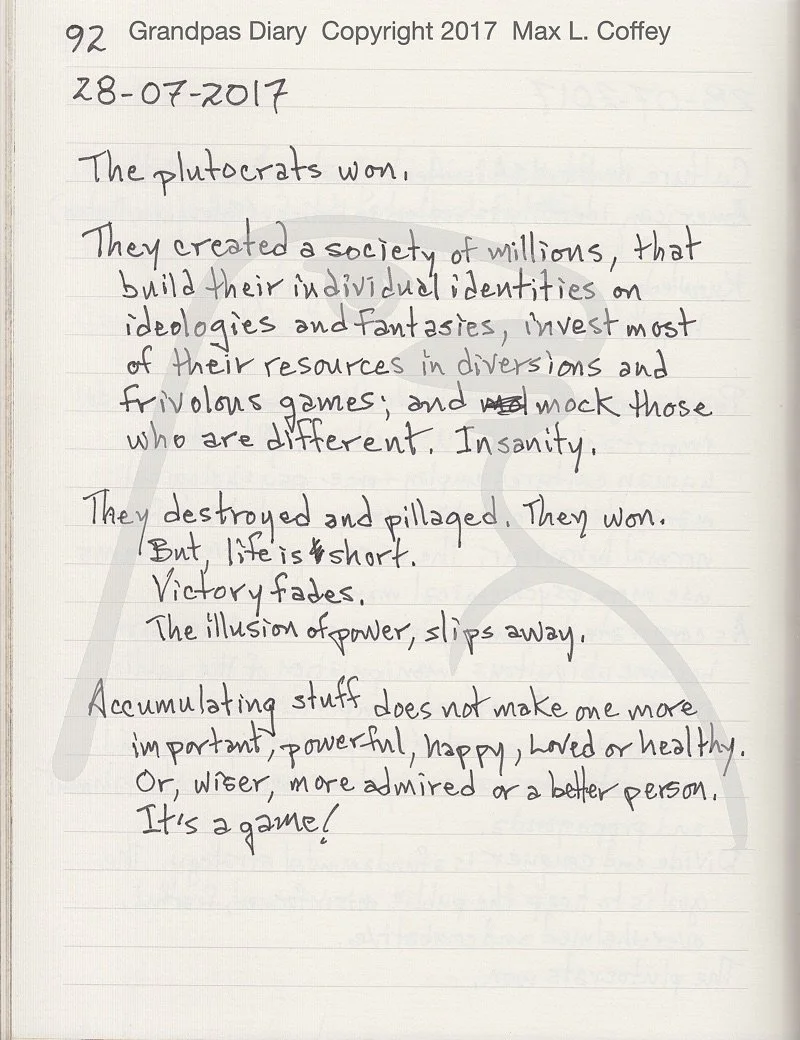 92 Grandpas Diary Copyright 2017 Max L. Coffey
28-07-2017
The plutocrats won.
They created a society of millions, that
build their individual identities on
ideologies and fantasies, invest most
of their resources in diversions and
frivolous games; and mock those
who are different. Insanity.
They destroyed and pillaged. They won.
But, life is short.
Victory fades.
The illusion of power, slips away.
Accumulating stuff does not make one more
important, powerful, happy, loved or healthy.
Or, wiser, more admired or a better person.
It's a game!